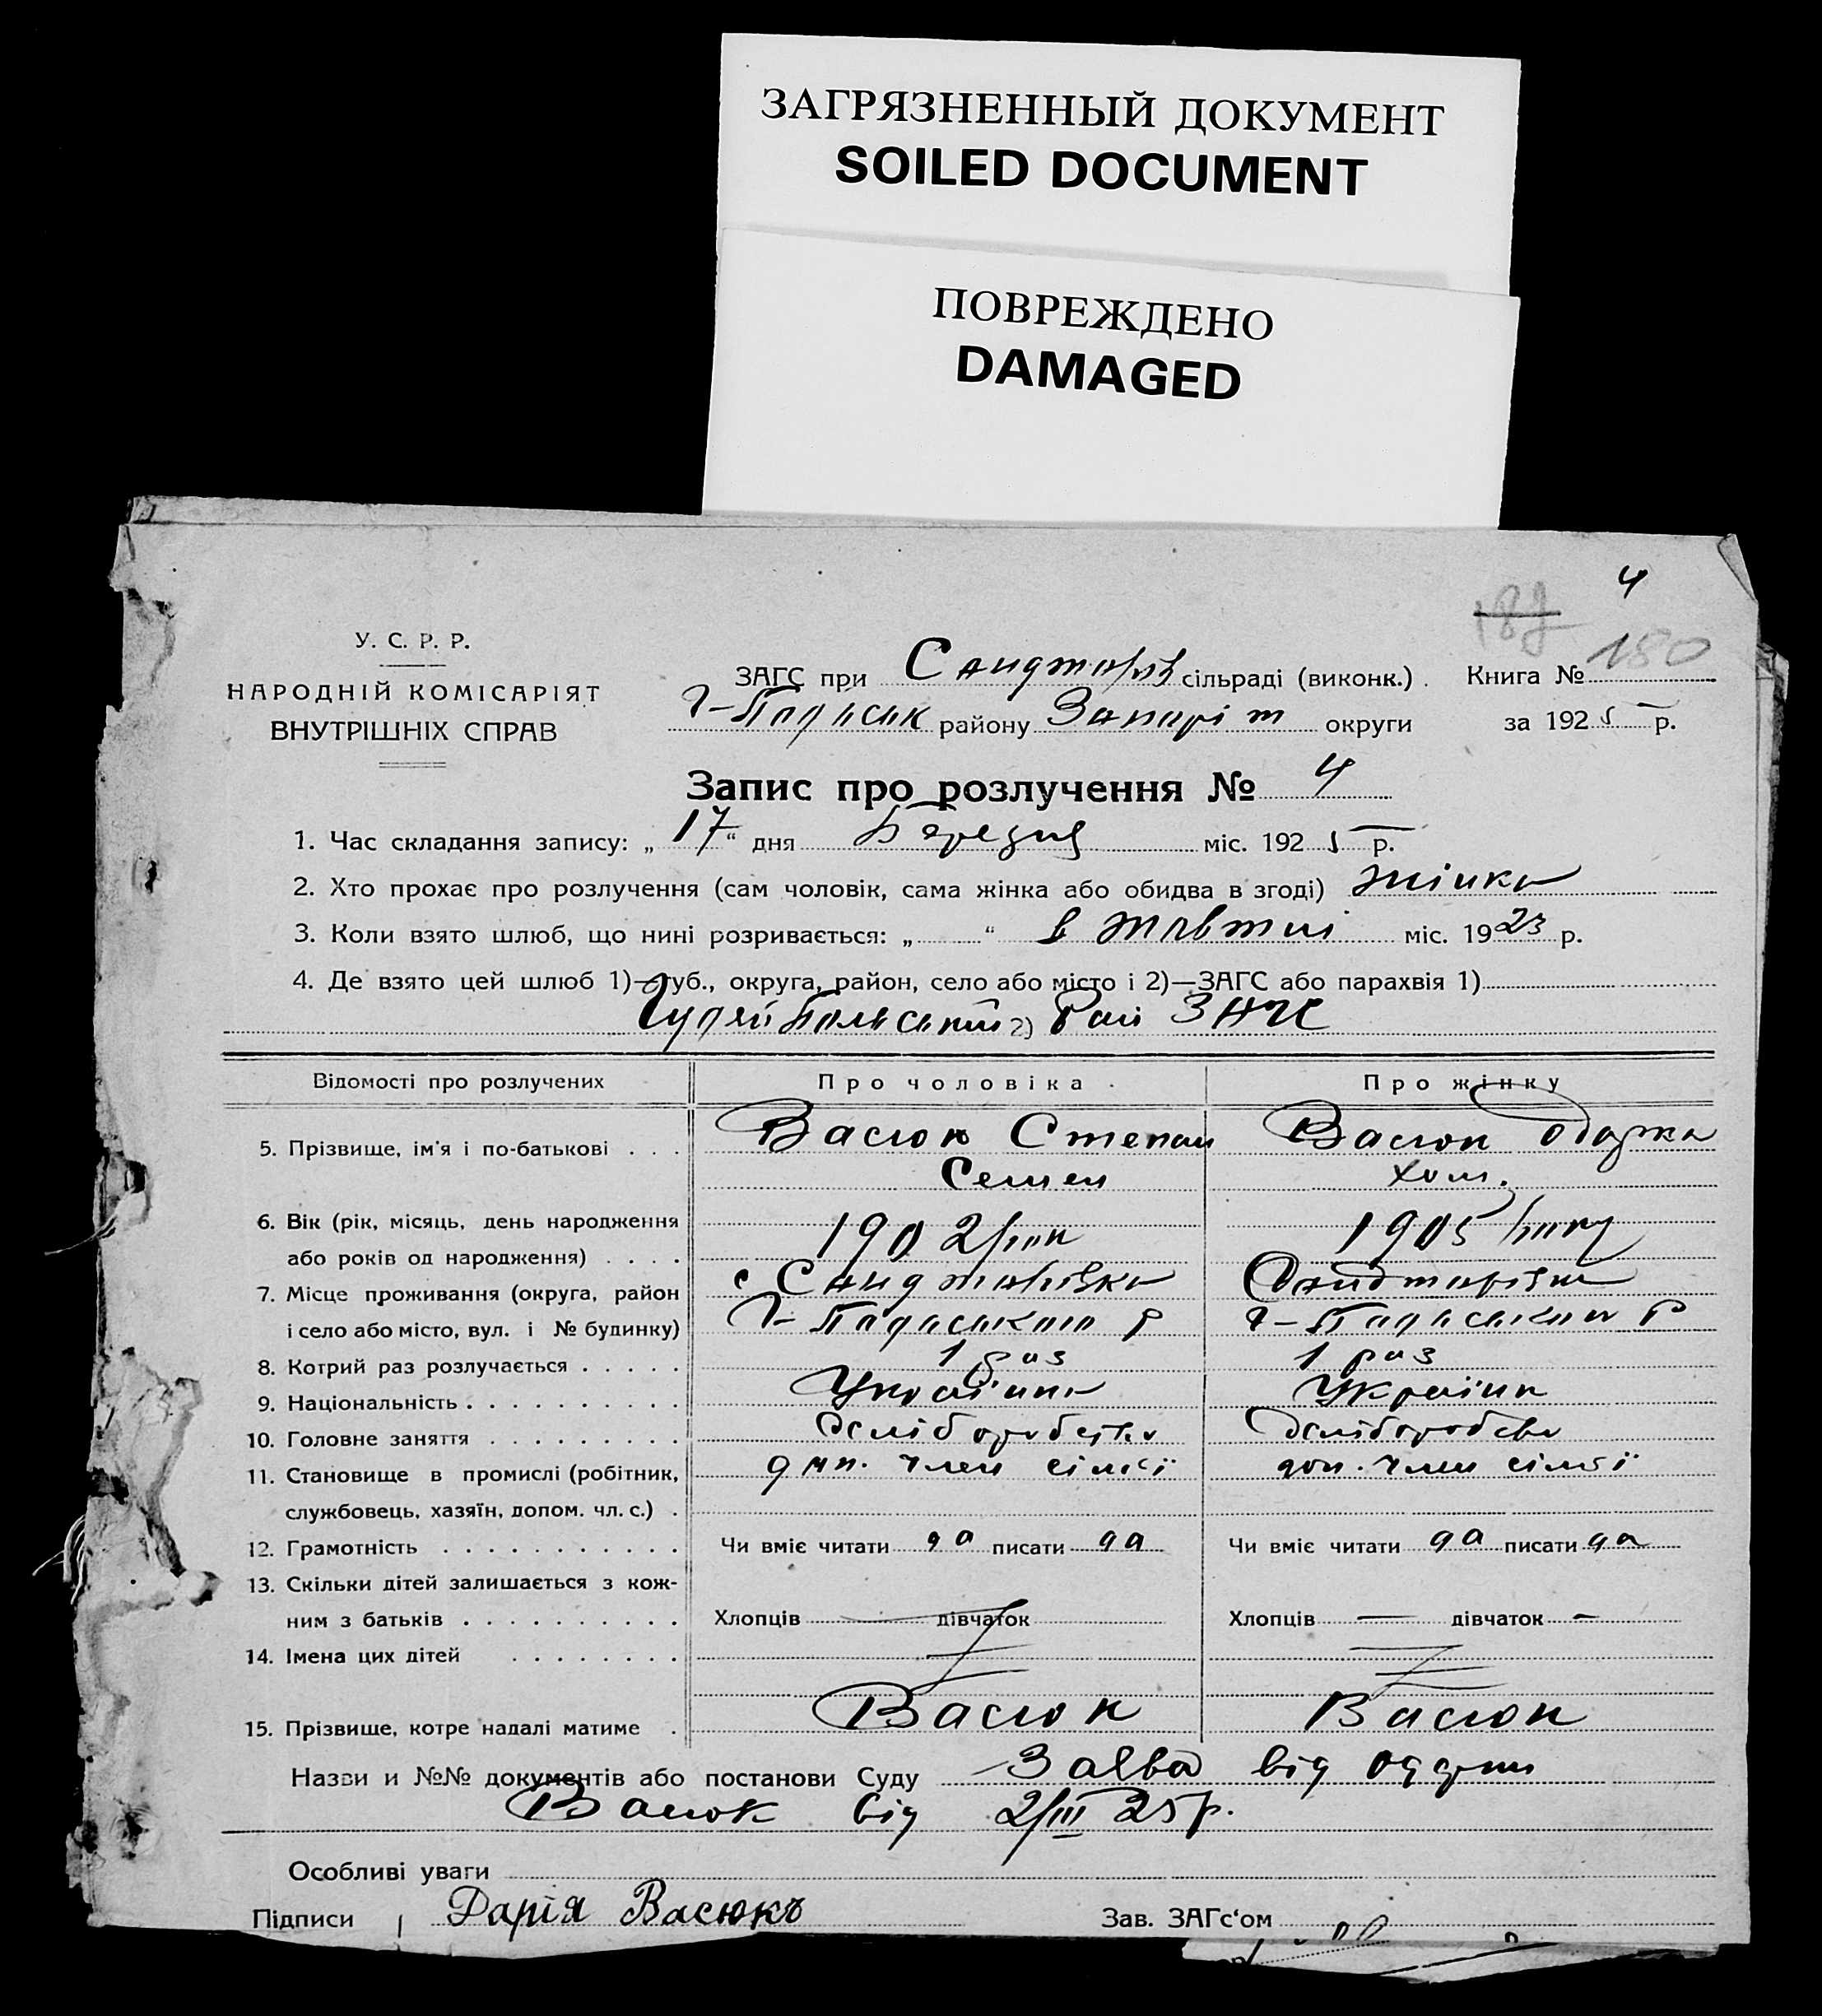 ЗАГРЯЗНЕННЫЙ ДОКУМЕНТ
SOILED DOCUMENT
ПОВРЕЖДЕНО
DAMAGED
4
187
180
У. С. Р. Р.
НАРОДНІЙ КОМІСАРІЯТ
ВНУТРІШНІХ СПРАВ
ЗАГС при сільраді (виконк.) . Книга №
району округи за 1925 р.
Запис про розлучення № 4
1. Час складання запису: „ 17 “ дня Березня міс. 1925 р.
2. Хто прохає про розлучення (сам чоловік, сама жінка або обидва в згоді) жінка
3. Коли взято шлюб, що нині розривається: „ “ в жовтні міс. 1923 р.
4. Де взято цей шлюб 1)—губ., округа, район, село або місто і 2)—ЗАГС або парахвія 1)
2) Рай ЗАГС
Відомості про розлучених Про чоловіка Про жінку
5. Прізвище, ім'я і по-батькові . . . Васюк Степан Васюк Одарка
Семен Хом.
6. Вік (рік, місяць, день народження
або років од народження) . . . . 1902 рок 1905 року
7. Місце проживання (округа, район с Сандтарівка Сандтарівка
і село або місто, вул. і № будинку)
8. Котрий раз розлучається . . . . . 1 раз 1 раз
9. Національність . . . . . . . . . . Україн
10. Головне заняття . . . . . . . . .
11. Становище в промислі (робітник, доп. член сімї доп. член сімї
службовець, хазяїн, допом. чл. с.) .
12. Грамотність . . . . . . . . . . . Чи вміє читати да писати да Чи вміє читати да писати да
13. Скільки дітей залишається з кож-
ним з батьків . . . . . . . . . . Хлопців — дівчаток Хлопців — дівчаток —
14. Імена цих дітей . . . . . . . .
15. Прізвище, котре надалі матиме . Васюк Васюк
Назви и №№ документів або постанови Суду Заява від Одарки
Васюк від 2/III 25 р.
Особливі уваги
Підписи Дарія Васюкъ Зав. ЗАГс‘ом